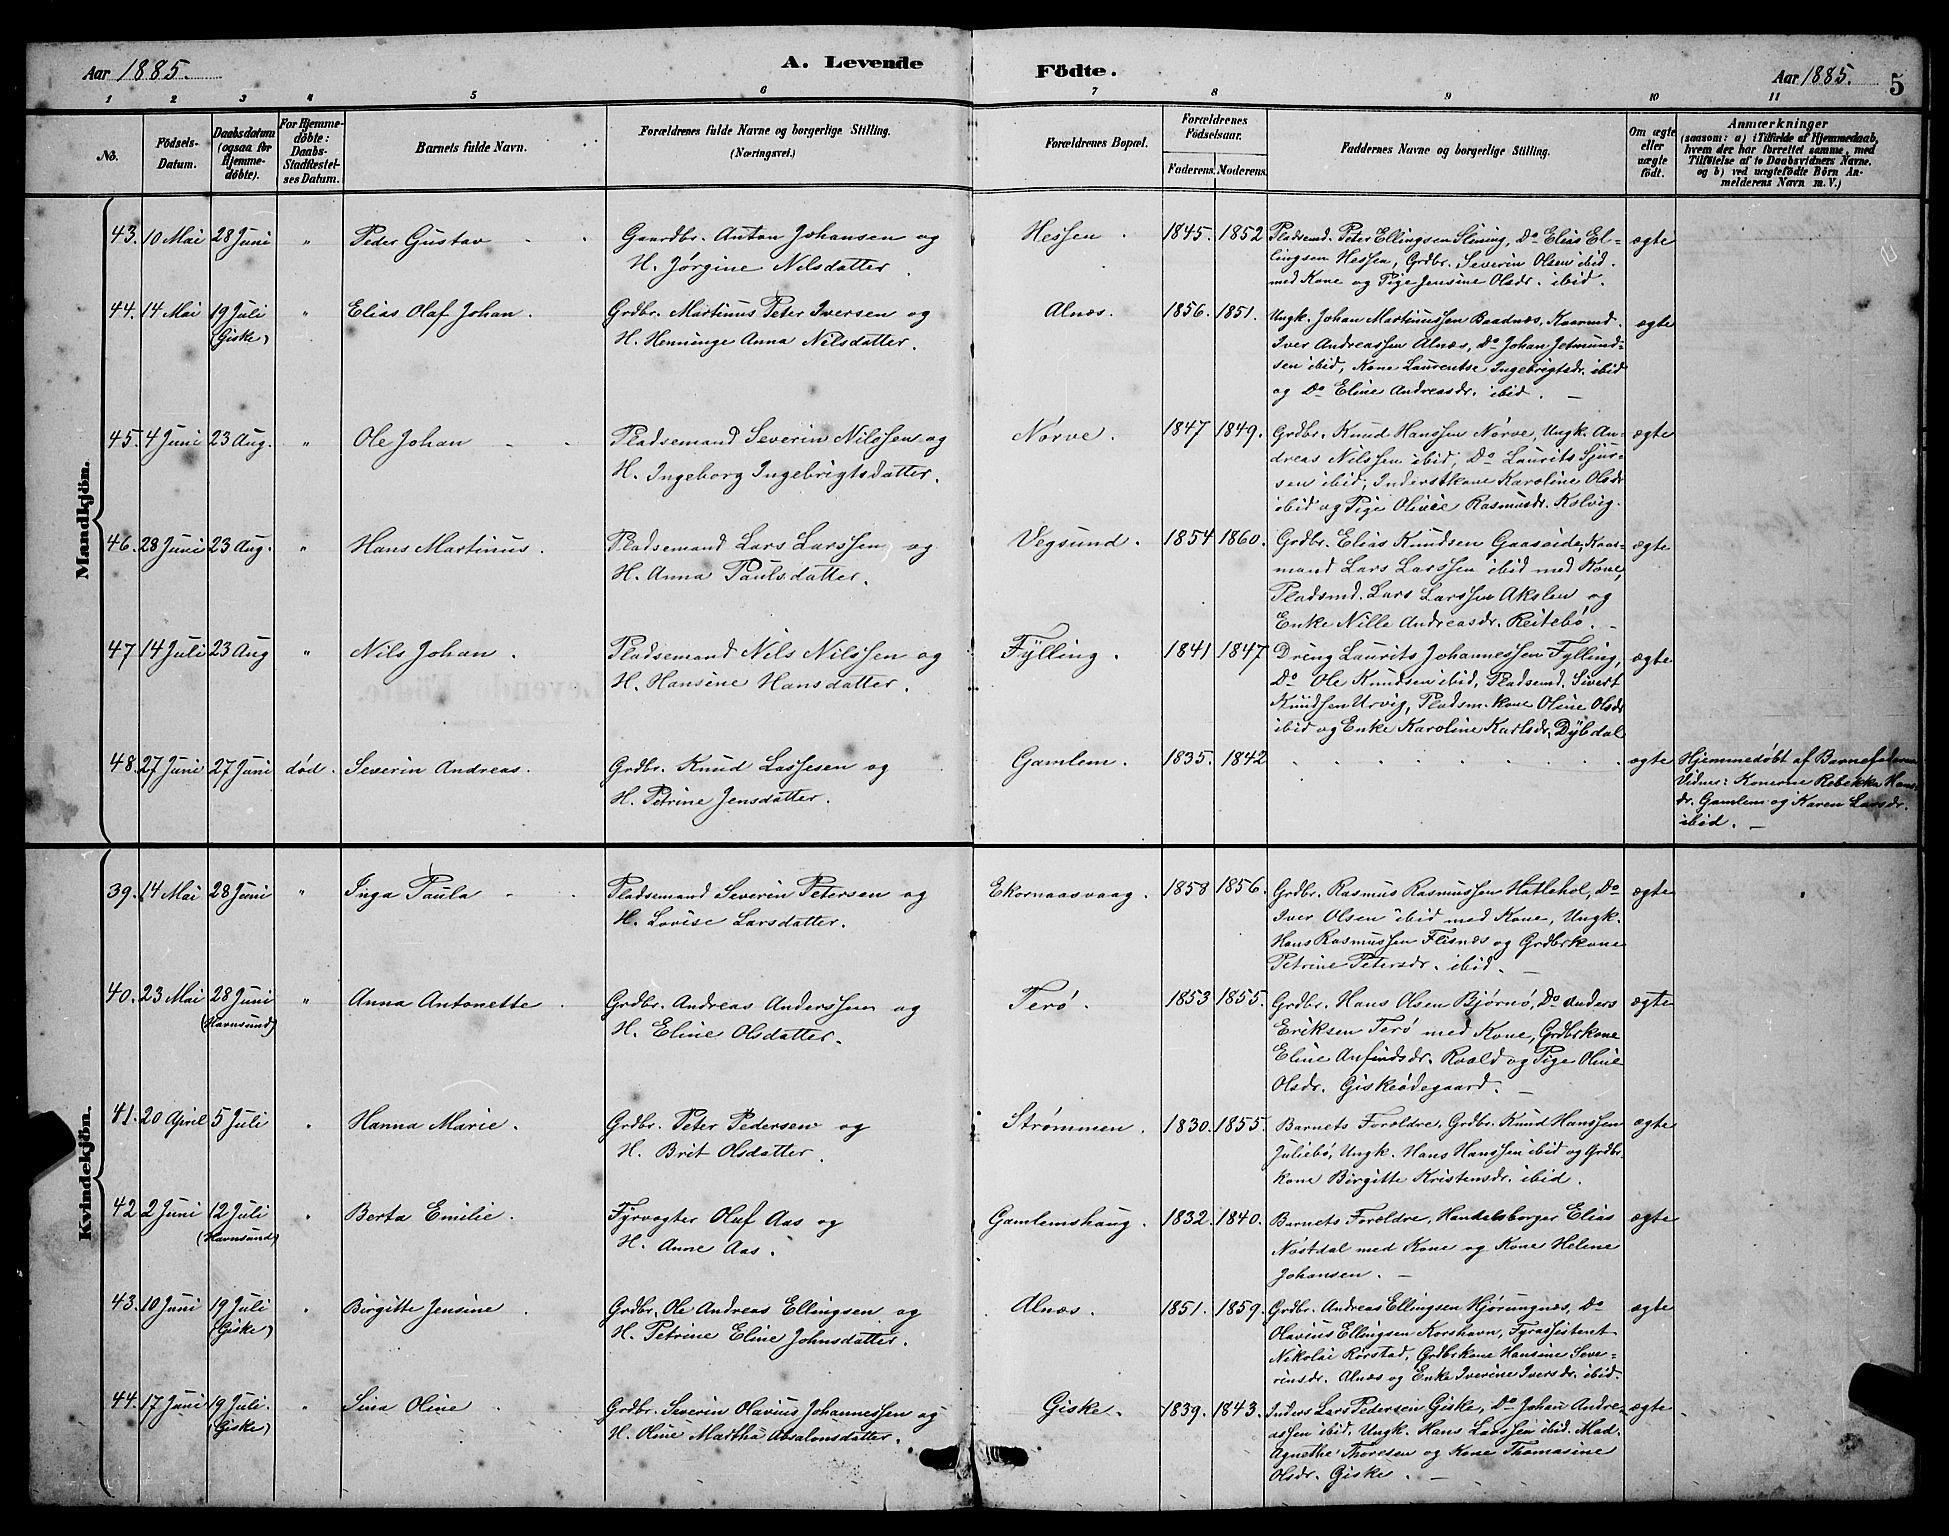 Aar 1885. A. Levende Födte. Aar 1885. 5
1 2 3 4 5 6 7 8 9 10 11
No. Födsels-Datum. Daabsdatum (ogsaa for Hjemmedöbte). For Hjemmedöbte: Daabs-Stadfæstelses Datum. Barnets fulde Navn. Forældrenes fulde Navne og borgerlige Stilling. (Næringsvei.) Forældrenes Bopæl. Forældrenes Födselsaar. Faderens. Moderens. Faddernes Navne og borgerlige Stilling. Om ægte eller uægte födt. Anmærkninger (saasom: a) i Tilfælde af Hjemmedaab, hvem der har forrettet samme, med Tilföielse af to Daabsvidners Navne, og b) ved uægtefödte Börn Anmelderens Navn m. V.)
Mandkjön.
43. 10 Mai 28 Juni " Peder Gustav Gaardbr. Anton Johansen og Hessen. 1845. 1852 Pladsemd. Peter Ellingsen Slining, Do Elias El- ægte
H. Jørgine Nilsdatter. lingsen Hessen, Grdbr. Severin Olsen ibid.
med Kone og Pige Jensine Olsdr. ibid.
44. 14 Mai 19 Juli " Elias Olaf Johan. Grdbr. Martinus Peter Iversen og Alnæs. 1856. 1851. Ungk. Johan Martinussen Baadnæs, Kaarmd. ægte
(Giske) H. Henninge Anna Nilsdatter. Iver Andreassen Alnæs, Do Johan Jetmund-
sen ibid, Kone Laurentse Ingebrigtsdr. ibid
og Do Eline Andreasdr. ibid. –
45. 4 Juni 23 Aug. " Ole Johan Pladsemand Severin Nilssen og Nørve. 1847 1849. Grdbr. Knud Hanssen Nørve, Ungk. An- ægte
H. Ingeborg Ingebrigtsdatter. dreas Nilssen ibid, Do Laurits Sjur-
sen ibid, Inderstkone Karoline Olsdr.
ibid og Pige Olivie Rasmusdr. Kolvig.
46. 28 Juni 23 Aug. " Hans Martinus. Pladsemand Lars Larssen og Vegsund. 1854 1860. Grdbr. Elias Knudsen Gaaseide, Kaar- ægte
H. Anna Paulsdatter. mand Lars Larssen ibid med Kone,
Pladsmd. Lars Larssen Akslen og
Enke Nille Andreasdr. Reitebø. –
47 14 Juli 23 Aug " Nils Johan. Pladsemand Nils Nilssen og Fylling. 1841 1847 Dreng Laurits Johannessen Fylling, ægte
H. Hansine Hansdatter. Do Ole Knudsen ibid, Pladsemd. Sivert
Knudsen Urvig, Pladsm. kone Oline Olsdr
ibid og Enke Karoline Karlsdr. Dybdal
48. 27 Juni 27 Juni død. Severin Andreas. Grdbr. Knud Lassesen og Gamlem. 1835. 1842 ægte Hjemmedøbt af Barnefaderen
H. Petrine Jensdatter. Vidner: Konerne Rebekka Hans-
dr. Gamlem og Karen Larsdr.
ibid. –
Kvindekjön.
39. 14 Mai 28 Juni " Inga Paula Pladsemand Severin Petersen og Ekornaasvaag. 1858 1856. Grdbr. Rasmus Rasmussen Hatlehol, Do ægte
H. Lovise Larsdatter. Iver Olsen ibid med Kone, Ungk.
Hans Rasmussen Flisnæs og Grdbrkone
Petrine Petersdr. ibid. –
40. 23 Mai 28 Juni " Anna Antonette Grdbr. Andreas Anderssen og Terø. 1853 1855. Grdbr. Hans Olsen Bjørnø, Do Anders ægte
(Havnsund) H. Eline Olsdatter. Eriksen Terø med Kone, Grdbrkone
Eline Anfindsdr. Roald og Pige Oline
Olsdr. Giskeødegaard. –
41. 20 April 5 Juli " Hanna Marie. Grdbr. Peter Pedersen og Strømmen. 1830. 1855. Barnets Forældre, Grdbr. Knud Hanssen ægte
H. Brit Olsdatter. Juliebø, Ungk. Hans Hanssen ibid og Grdbr.
kone Birgitte Kristensdr. ibid.
42 2 Juni 12 Juli " Berta Emilie. Fyrvogter Oluf Aas og Gamlemshaug. 1832. 1840. Barnets Forældre, Handelsborger Elias ægte
(Havnsund) H. Anne Aas. Nøstdal med Kone og Kone Helene
Johansen. –
43. 10 Juni 19 Juli " Birgitte Jensine Grdbr. Ole Andreas Ellingsen og Alnæs. 1851. 1859. Grdbr. Andreas Ellingsen Hjørungnæs, Do ægte
(Giske) H. Petrine Eline Johnsdatter. Olavius Ellingsen Korshavn, Fyrassistent
Nikolai Rørstad, Grdbrkone Hansine Seve-
rinsdr. Alnæs og Enke Iverine Iversdr. ibid.
44. 17 Juni 19 Juli. " Sina Oline Grdbr. Severin Olavius Johannessen og Giske. 1839. 1843. Inders Lars Pedersen Giske, Do Johan Andre- ægte
(Giske) H. Oline Martha Absalonsdatter. assen ibid. Ungk. Hans Larssen ibid. Mad.
Agnethe Thoresen og Kone Thomasine
Olsdr. Giske. –